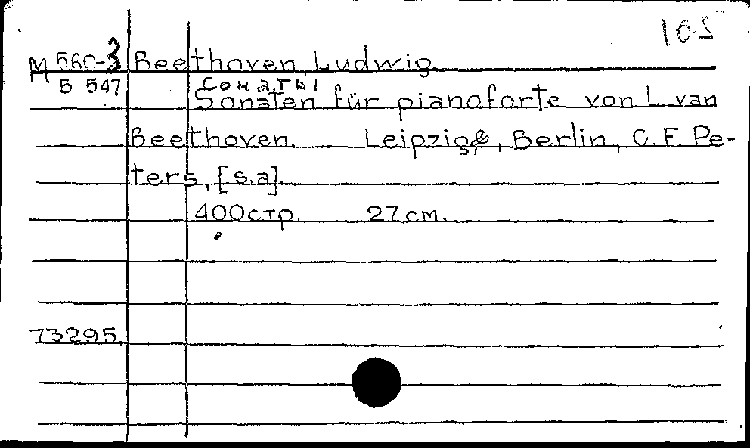 M 560-3 Beethoven, Ludwig.
Б 547 Сонаты
Sonaten für pianoforte von L. van
Beethoven. Leipzig, Berlin, C. F. Pe-
ters, [s.a].
400 стр. 27 см.
73295.